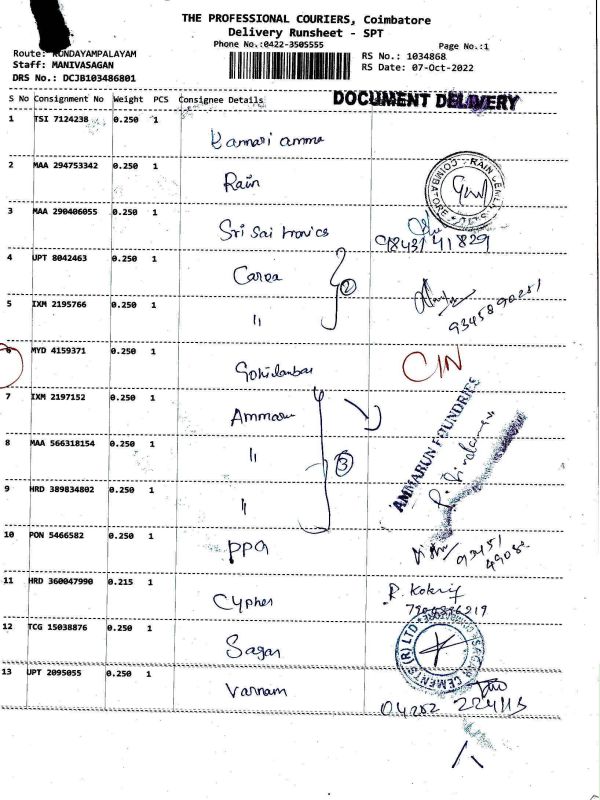 THE PROFESSIONAL COURIERS, Coimbatore
Delivery Runsheet - SPT
Phone No.:0422-3505555
Page No.:1
Route: KONDAYAMPALAYAM
Staff: MANIVASAGAN
DRS No.: DCJB103486801
RS No.: 1034868
RS Date: 07-Oct-2022
S No Consignment No Weight PCS Consignee Details
DOCUMENT DELIVERY
1 TSI 7124238 0.250 1
Kannari amma
2 MAA 294753342 0.250 1
Rain
RAIN CEMEN COIMBATORE
3 MAA 290406055 0.250 1
Sri Sai tronics
98431 41829
4 UPT 8042463 0.250 1
Carea
2
5 IXM 2195766 0.250 1
"
9345890251
6 MYD 4159371 0.250 1
CIN
7 IXM 2197152 0.250 1
Ammarun
AMMARUN FOUNDRIES
8 MAA 566318154 0.250 1
"
3
9 HRD 389834802 0.250 1
"
10 PON 5466582 0.250 1
PPG
93451
11 HRD 360047990 0.215 1
Cypher
12 TCG 15038876 0.250 1
Sagar
SAGAR CEMENTS (R) LTD COIMBATORE
13 UPT 2095055 0.250 1
Varnam
04282 224113